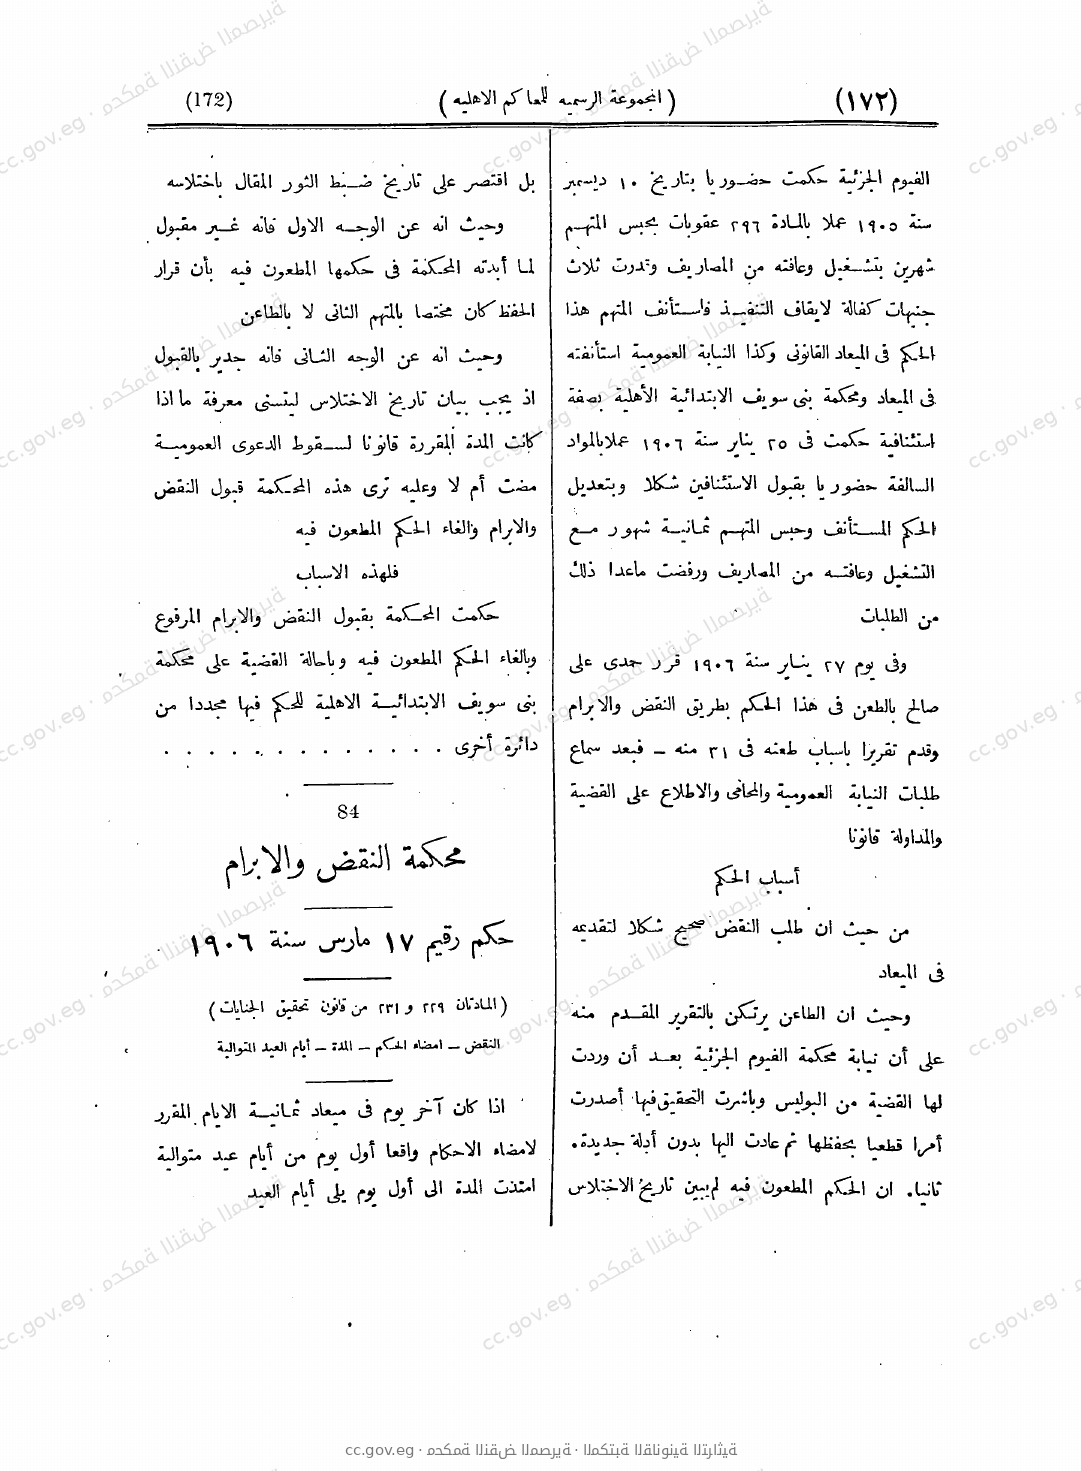 (١٧٢)
( المجموعة الرسميه للمحاكم الاهليه )
(172)
الفيوم الجزئية حكمت حضوريا بتاريخ ١٠ ديسمبر
سنة ١٩٠٥ عملا بالمادة ٢٩٦ عقوبات بحبس المتهم
شهرين بتشغيل وعافته من المصاريف وقدرت ثلاث
جنيهات كفالة لايقاف التنفيذ فاستأنف المتهم هذا
الحكم فى الميعاد القانونى وكذا النيابة العمومية استأنفته
فى الميعاد ومحكمة بنى سويف الابتدائية الأهلية بصفة
استئنافية حكمت فى ٢٥ يناير سنة ١٩٠٦ عملا بالمواد
السالفة حضوريا بقبول الاستئنافين شكلا وبتعديل
الحكم المستأنف وحبس المتهم ثمانية شهور مع
التشغيل وعافته من المصاريف ورفضت ماعدا ذلك
من الطلبات
وفى يوم ٢٧ يناير سنة ١٩٠٦ قرر حمدى على
صالح بالطعن فى هذا الحكم بطريق النقض والابرام
وقدم تقريرا باسباب طعنه فى ٣١ منه – فبعد سماع
طلبات النيابة العمومية والمحامى والاطلاع على القضية
والمداولة قانونا
أسباب الحكم
من حيث ان طلب النقض صحيح شكلا لتقديمه
فى الميعاد
وحيث ان الطاعن يرتكن بالتقرير المقدم منه
على أن نيابة محكمة الفيوم الجزئية بعد أن وردت
لها القضية من البوليس وباشرت التحقيق فيها أصدرت
أمرا قطعيا بحفظها ثم عادت اليها بدون أدلة جديدة.
ثانيا. ان الحكم المطعون فيه لم يبين تاريخ الاختلاس
بل اقتصر على تاريخ ضبط الثور المقال باختلاسه
وحيث انه عن الوجه الاول فانه غير مقبول
لما أبدته المحكمة فى حكمها المطعون فيه بأن قرار
الحفظ كان مختصا بالمتهم الثانى لا بالطاعن
وحيث انه عن الوجه الثانى فانه جدير بالقبول
اذ يجب بيان تاريخ الاختلاس ليتسنى معرفة ما اذا
كانت المدة المقررة قانونا لسقوط الدعوى العمومية
مضت أم لا وعليه ترى هذه المحكمة قبول النقض
والابرام والغاء الحكم المطعون فيه
فلهذه الاسباب
حكمت المحكمة بقبول النقض والابرام المرفوع
وبالغاء الحكم المطعون فيه وباحالة القضية على محكمة
بنى سويف الابتدائية الاهلية للحكم فيها مجددا من
دائرة أخرى . . . . . . . . . . . . .
84
محكمة النقض والابرام
حكم رقيم ١٧ مارس سنة ١٩٠٦
( المادتان ٢٢٩ و ٢٣١ من قانون تحقيق الجنايات )
النقض – امضاء الحكم – المدة – أيام العيد المتوالية
اذا كان آخر يوم فى ميعاد ثمانية الايام المقرر
لامضاء الاحكام واقعا أول يوم من أيام عيد متوالية
امتدت المدة الى أول يوم يلى أيام العيد
cc.gov.eg · محكمة النقض المصرية · المكتبة القانونية التراثية